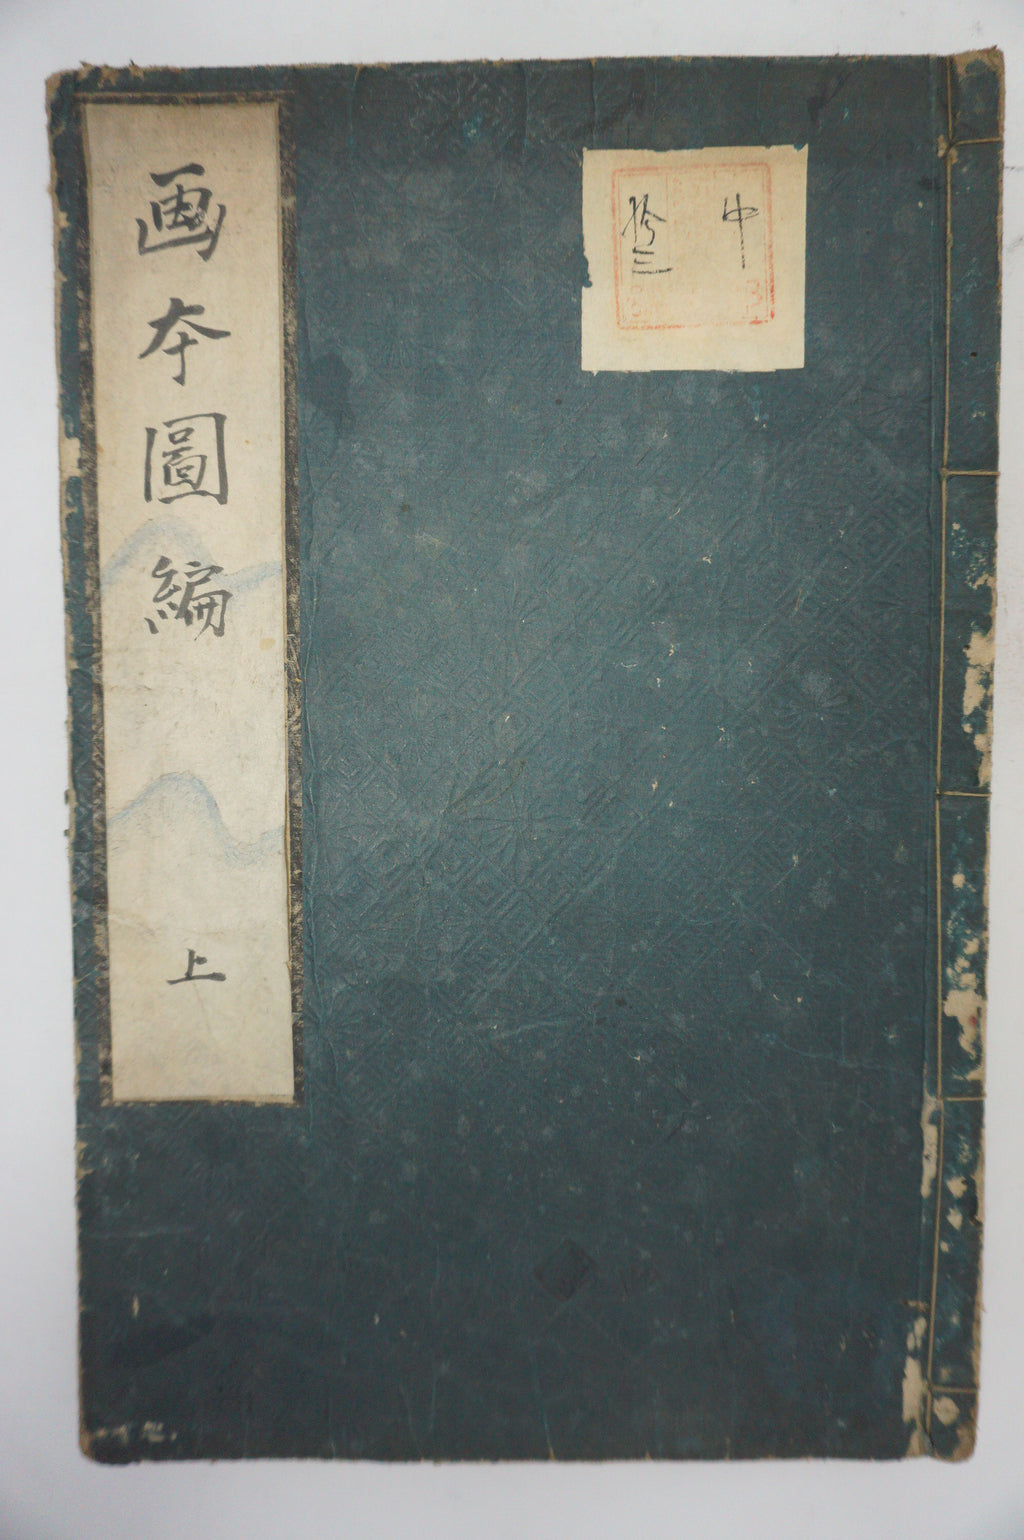 中
拾三
画本圖編
上